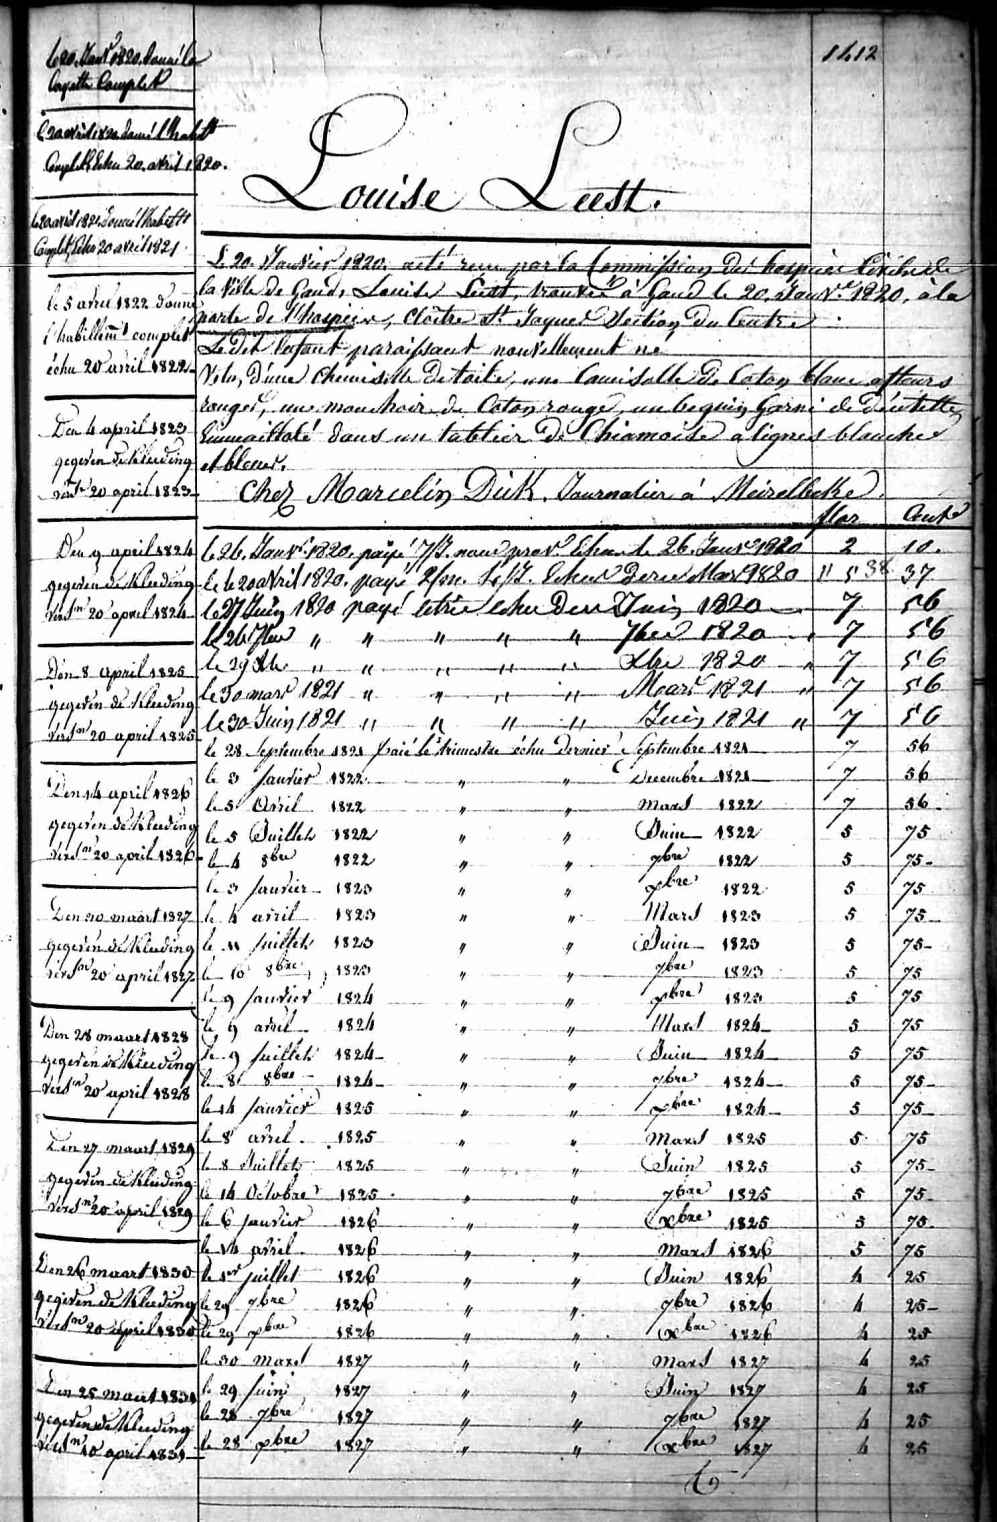 1412
Louise Leest.
Le 20. Janvier 1820. a été reçu par la Commission des hospices Civils de
la Ville de Gand, Louise Leest, trouvée à Gand le 20. Janv.r 1820, à la
porte de l'hospice, Cloître St. Jaques Section du Centre
Le dit Enfant paraissant nouvellement né
Vêtu, d'une chemisette de toile, une Camisolle de Coton blanc à fleurs
rouges, un mouchoir de Coton rouge, un beguin garni de dentelle,
Emmailloté dans un tablier de Chiamoise à lignes blanches
et bleues.
Chez Marcelin Dick. Journalier à Meirelbeke.
flor Cents
le 26. Janv.r 1820. payé echu le 26. Janv.r 1820 2 10.
le 20 avril 1820. payé Echus Mars 1820 " 5 38 37
le 27 Juin 1820 payé echu Juin 1820 7 56
le 26 7bre " " " " " 7bre 1820 " 7 56
le 29 Xbre " " " " " Xbre 1820 " 7 56
le 30 mars 1821 " " " " Mars 1821 " 7 56
le 30 Juin 1821 " " " " Juin 1821 " 7 56
le 28 Septembre 1821 païé le trimestre échu dernier Septembre 1821 7 56
le 3 Janvier 1822 " " Decembre 1821 7 56
le 5 Avril 1822 " " Mars 1822 7 56
le 5 Juillet 1822 " " Juin 1822 5 75
le 4 8bre 1822 " " 7bre 1822 5 75
le 3 Janvier 1823 " " xbre 1822 5 75
le 4 avril 1823 " " Mars 1823 5 75
le 11 Juillet 1823 " " Juin 1823 5 75
le 10 8bre 1823 " " 7bre 1823 5 75
le 9 Janvier 1824 " " xbre 1823 5 75
le 9 avril 1824 " " Mars 1824 5 75
le 9 Juillet 1824 " " Juin 1824 5 75
le 8 8bre 1824 " " 7bre 1824 5 75
le 14 Janvier 1825 " " xbre 1824 5 75
le 8 avril 1825 " " Mars 1825 5 75
le 8 Juillet 1825 " " Juin 1825 5 75
le 14 Octobre 1825 " " 7bre 1825 5 75
le 6 Janvier 1826 " " xbre 1825 5 75
le 14 avril 1826 " " Mars 1826 5 75
le 1er Juillet 1826 " " Juin 1826 4 25
le 29 7bre 1826 " " 7bre 1826 4 25
le 29 xbre 1826 " " xbre 1826 4 25
le 30 Mars 1827 " " Mars 1827 4 25
le 29 Juin 1827 " " Juin 1827 4 25
le 28 7bre 1827 " " 7bre 1827 4 25
le 28 xbre 1827 " " xbre 1827 4 25
le 20. Janv.r 1820. donné la
Layette Complet
le 20 avril 1820 donné l'habitt
Complet Echu 20. avril 1820.
le 20 avril 1821 donné l'habitt
Complet, Echu 20 avril 1821.
le 5 avril 1822 donné
l'habillemt complet
échu 20 avril 1822
Den 4 april 1823
gegeven de Kleeding
versn 20 april 1823
Den 9 april 1824
gegeven de Kleeding
versn 20 april 1824
Den 8 april 1825
gegeven de Kleeding
versn 20 april 1825
Den 14 april 1826
gegeven de Kleeding
versn 20 april 1826
Den 30 maart 1827
gegeven de Kleeding
versn 20 april 1827
Den 28 maart 1828
gegeven de Kleeding
versn 20 april 1828
Den 27 maart 1829
gegeven de Kleeding
versn 20 april 1829
Den 26 maart 1830
gegeven de Kleeding
versn 20 april 1830
Den 25 maart 1831
gegeven de Kleeding
versn 10 april 1831